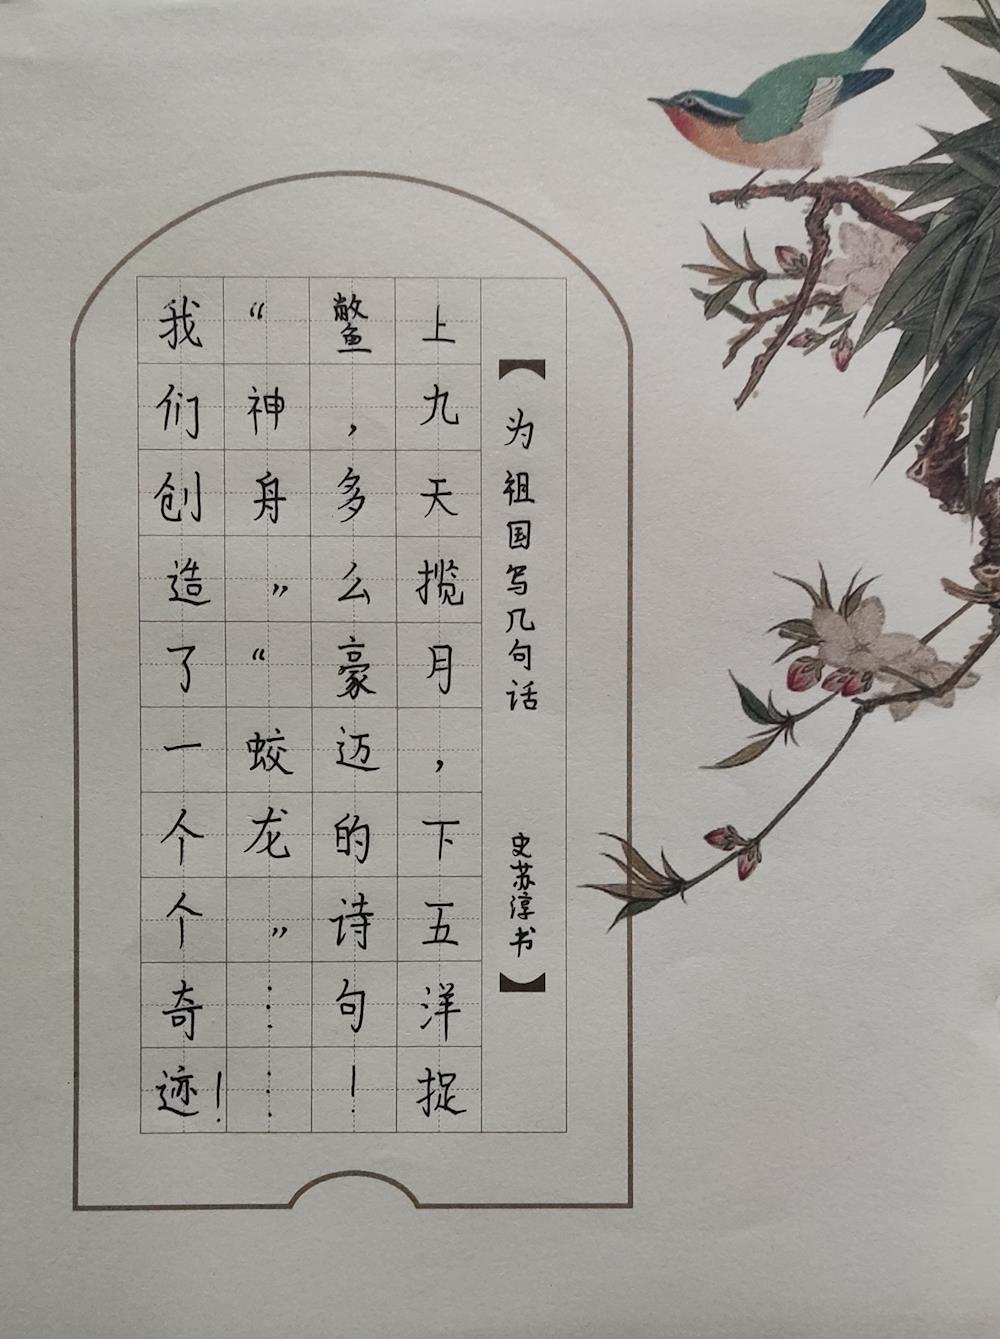 【为祖国写几句话 史苏淳书】
上九天揽月，下五洋捉
鳖，多么豪迈的诗句！
“神舟”“蛟龙”……
我们创造了一个个奇迹！